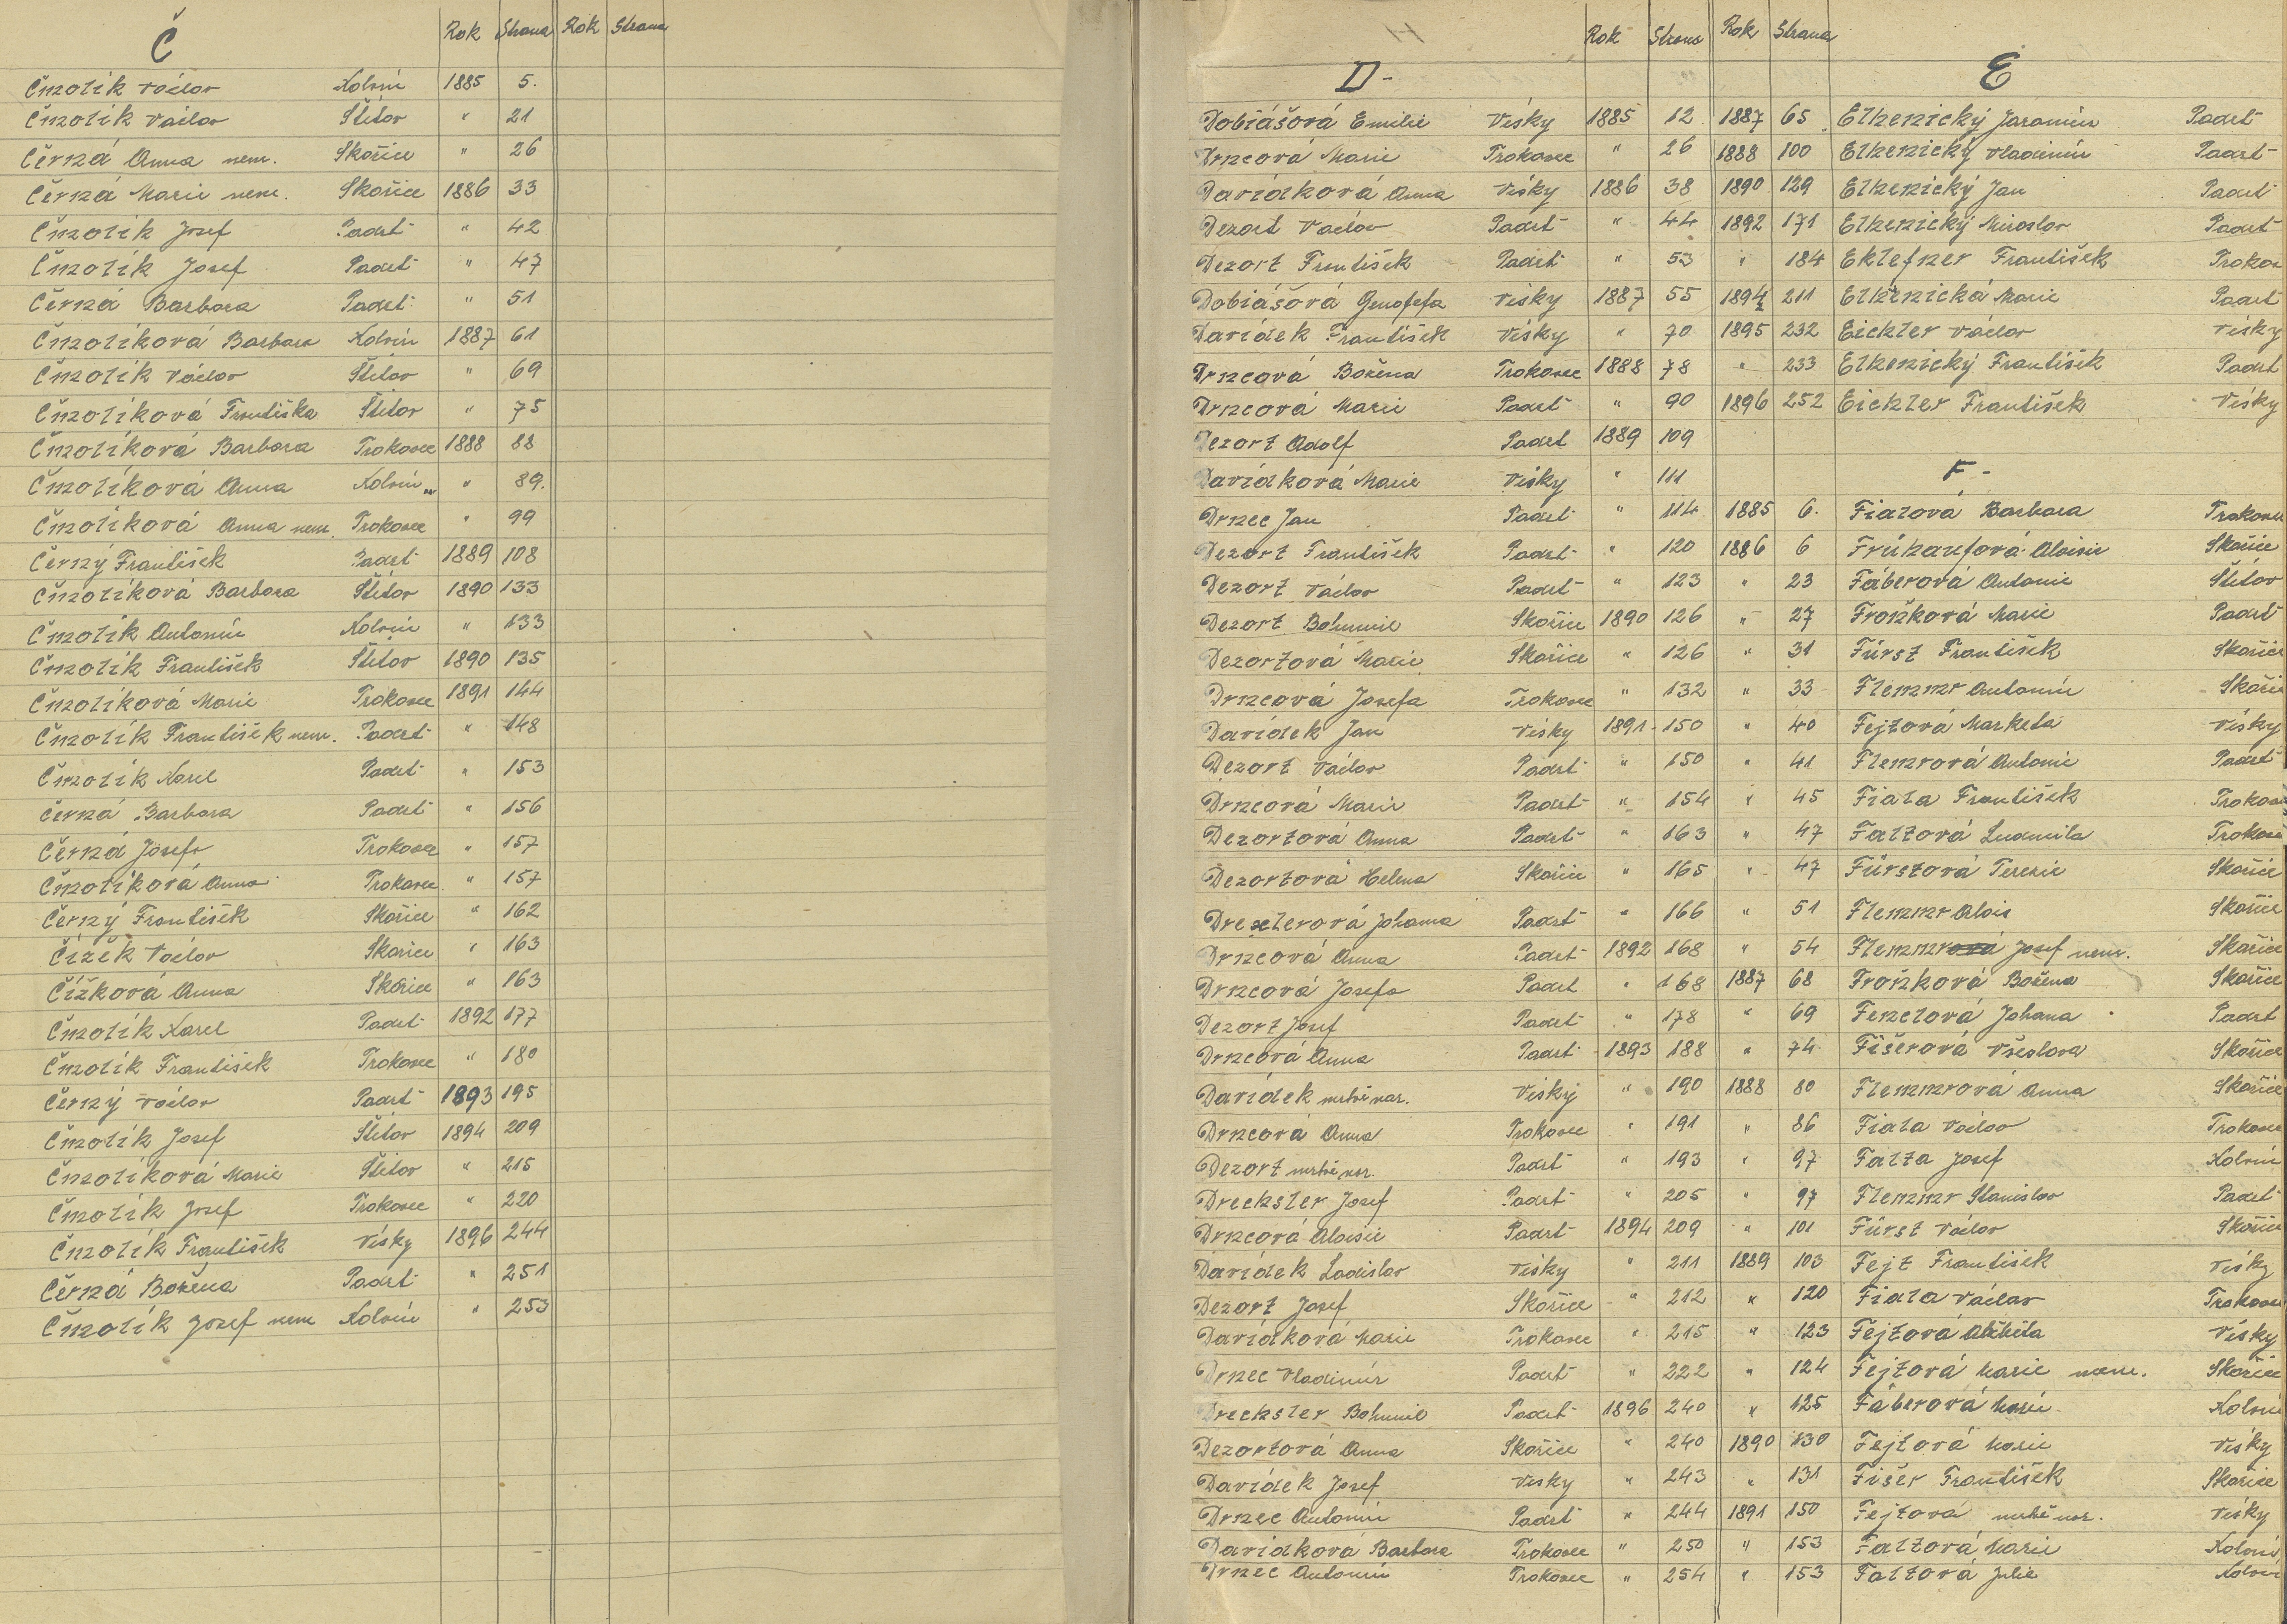 Č Rok Strana Rok Strana
Čmolík Václav Kolvín 1885 5.
Čmolík Václav Štítov " 21
Černá Anna nem. Skořice " 26
Černá Marie nem. Skořice 1886 33
Čmolík Josef Padrť " 42
Čmolík Josef Padrť " 47
Černá Barbora Padrť " 51
Čmolíková Barbora Kolvín 1887 61
Čmolík Václav Štítov " 69
Čmolíková Františka Štítov " 75
Čmolíková Barbora Trokavec 1888 88
Čmolíková Anna Kolvín " 89.
Čmolíková Anna nem. Trokavec " 99
Černý František Padrť 1889 108
Čmolíková Barbora Štítov 1890 133
Čmolík Antonín Kolvín " 133
Čmolík František Štítov 1890 135
Čmolíková Marie Trokavec 1891 144
Čmolík František nem. Padrť " 148
Čmolík Karel Padrť " 153
Černá Barbora Padrť " 156
Černá Josefa Trokavec " 157
Čmolíková Anna Trokavec " 157
Černý František Skořice " 162
Čížek Václav Skořice " 163
Čížková Anna Skořice " 163
Čmolík Karel Padrť 1892 177
Čmolík František Trokavec " 180
Černý Václav Padrť 1893 195
Čmolík Josef Štítov 1894 209
Čmolíková Marie Štítov " 215
Čmolík Josef Trokavec " 220
Čmolík František Vísky 1896 244
Černá Božena Padrť " 251
Čmolík Josef nem Kolvín " 253
D- Rok Strana
Dobiášová Emilie Vísky 1885 12
Drncová Marie Trokavec " 26
Davídková Anna Vísky 1886 38
Dezort Václav Padrť " 44
Dezort František Padrť " 53
Dobiášová Genofefa Vísky 1887 55
Davídek František Vísky " 70
Drncová Božena Trokavec 1888 78
Drncová Marie Padrť " 90
Dezort Adolf Padrť 1889 109
Davídková Marie Vísky " 111
Drnec Jan Padrť " 114
Dezort František Padrť " 120
Dezort Václav Padrť " 123
Dezort Bohumil Skořice 1890 126
Dezortová Marie Skořice " 126
Drncová Josefa Trokavec " 132
Davídek Jan Vísky 1891 150
Dezort Václav Padrť " 150
Drncová Marie Padrť " 154
Dezortová Anna Padrť " 163
Dezortová Helena Skořice " 165
Drexlerová Johana Padrť " 166
Drncová Anna Padrť 1892 168
Drncová Josefa Padrť " 168
Dezort Josef Padrť " 178
Drncová Anna Padrť 1893 188
Davídek mrtvě nar. Vísky " 190
Drncová Anna Trokavec " 191
Dezort mrtvě nar. Padrť " 193
Drechsler Josef Padrť " 205
Drncová Aloisie Padrť 1894 209
Davídek Ladislav Vísky " 211
Dezort Josef Skořice " 212
Davídková Marie Trokavec " 215
Drnec Vladimír Padrť " 222
Drechsler Bohumil Padrť 1896 240
Dezortová Anna Skořice " 240
Davídek Josef Vísky " 243
Drnec Antonín Padrť " 244
Davídková Barbora Trokavec " 250
Drnec Antonín Trokavec " 254
Rok Strana E
1887 65 Elhenický Jaromír Padrť
1888 100 Elhenický Vladimír Padrť
1890 129 Elhenický Jan Padrť
1892 171 Elhenický Miroslav Padrť
" 184 Eklefner František Trokav
1894 211 Elhenická Marie Padrť
1895 232 Eichler Václav Vísky
" 233 Elhenický František Padrť
1896 252 Eichler František Vísky
F-
1885 6. Fialová Barbora Trokavec
1886 6 Frühaufová Aloisie Skořice
" 23 Fáberová Antonie Štítov
" 27 Froňková Marie Padrť
" 31 Fürst František Skořice
" 33 Flemmr Antonín Skořice
" 40 Fejtová Marketa Vísky
" 41 Flemrová Antonie Padrť
" 45 Fiala František Trokavec
" 47 Faltová Ludmila Trokavec
" 47 Fürstová Terezie Skořice
" 51 Flemmr Alois Skořice
" 54 Flemmrová Josef nem. Skořice
1887 68 Froňková Božena Skořice
" 69 Fenclová Johana Padrť
" 74 Fišerová Věseslava Skořice
1888 80 Flemmrová Anna Skořice
" 86 Fiala Václav Trokavec
" 97 Falta Josef Kolvín
" 97 Flemmr Stanislav Padrť
" 101 Fürst Václav Skořice
1889 103 Fejt František Vísky
" 120 Fiala Václav Trokavec
" 123 Fejtová Alžběta Vísky
" 124 Fejtová Marie nem. Skořice
" 125 Fáberová Marie Kolvín
1890 130 Fejtová Marie Vísky
" 131 Fišer František Skořice
1891 150 Fejtová mrtvě nar. Vísky
" 153 Faltová Marie Kolvín
" 153 Faltová Julie Kolvín